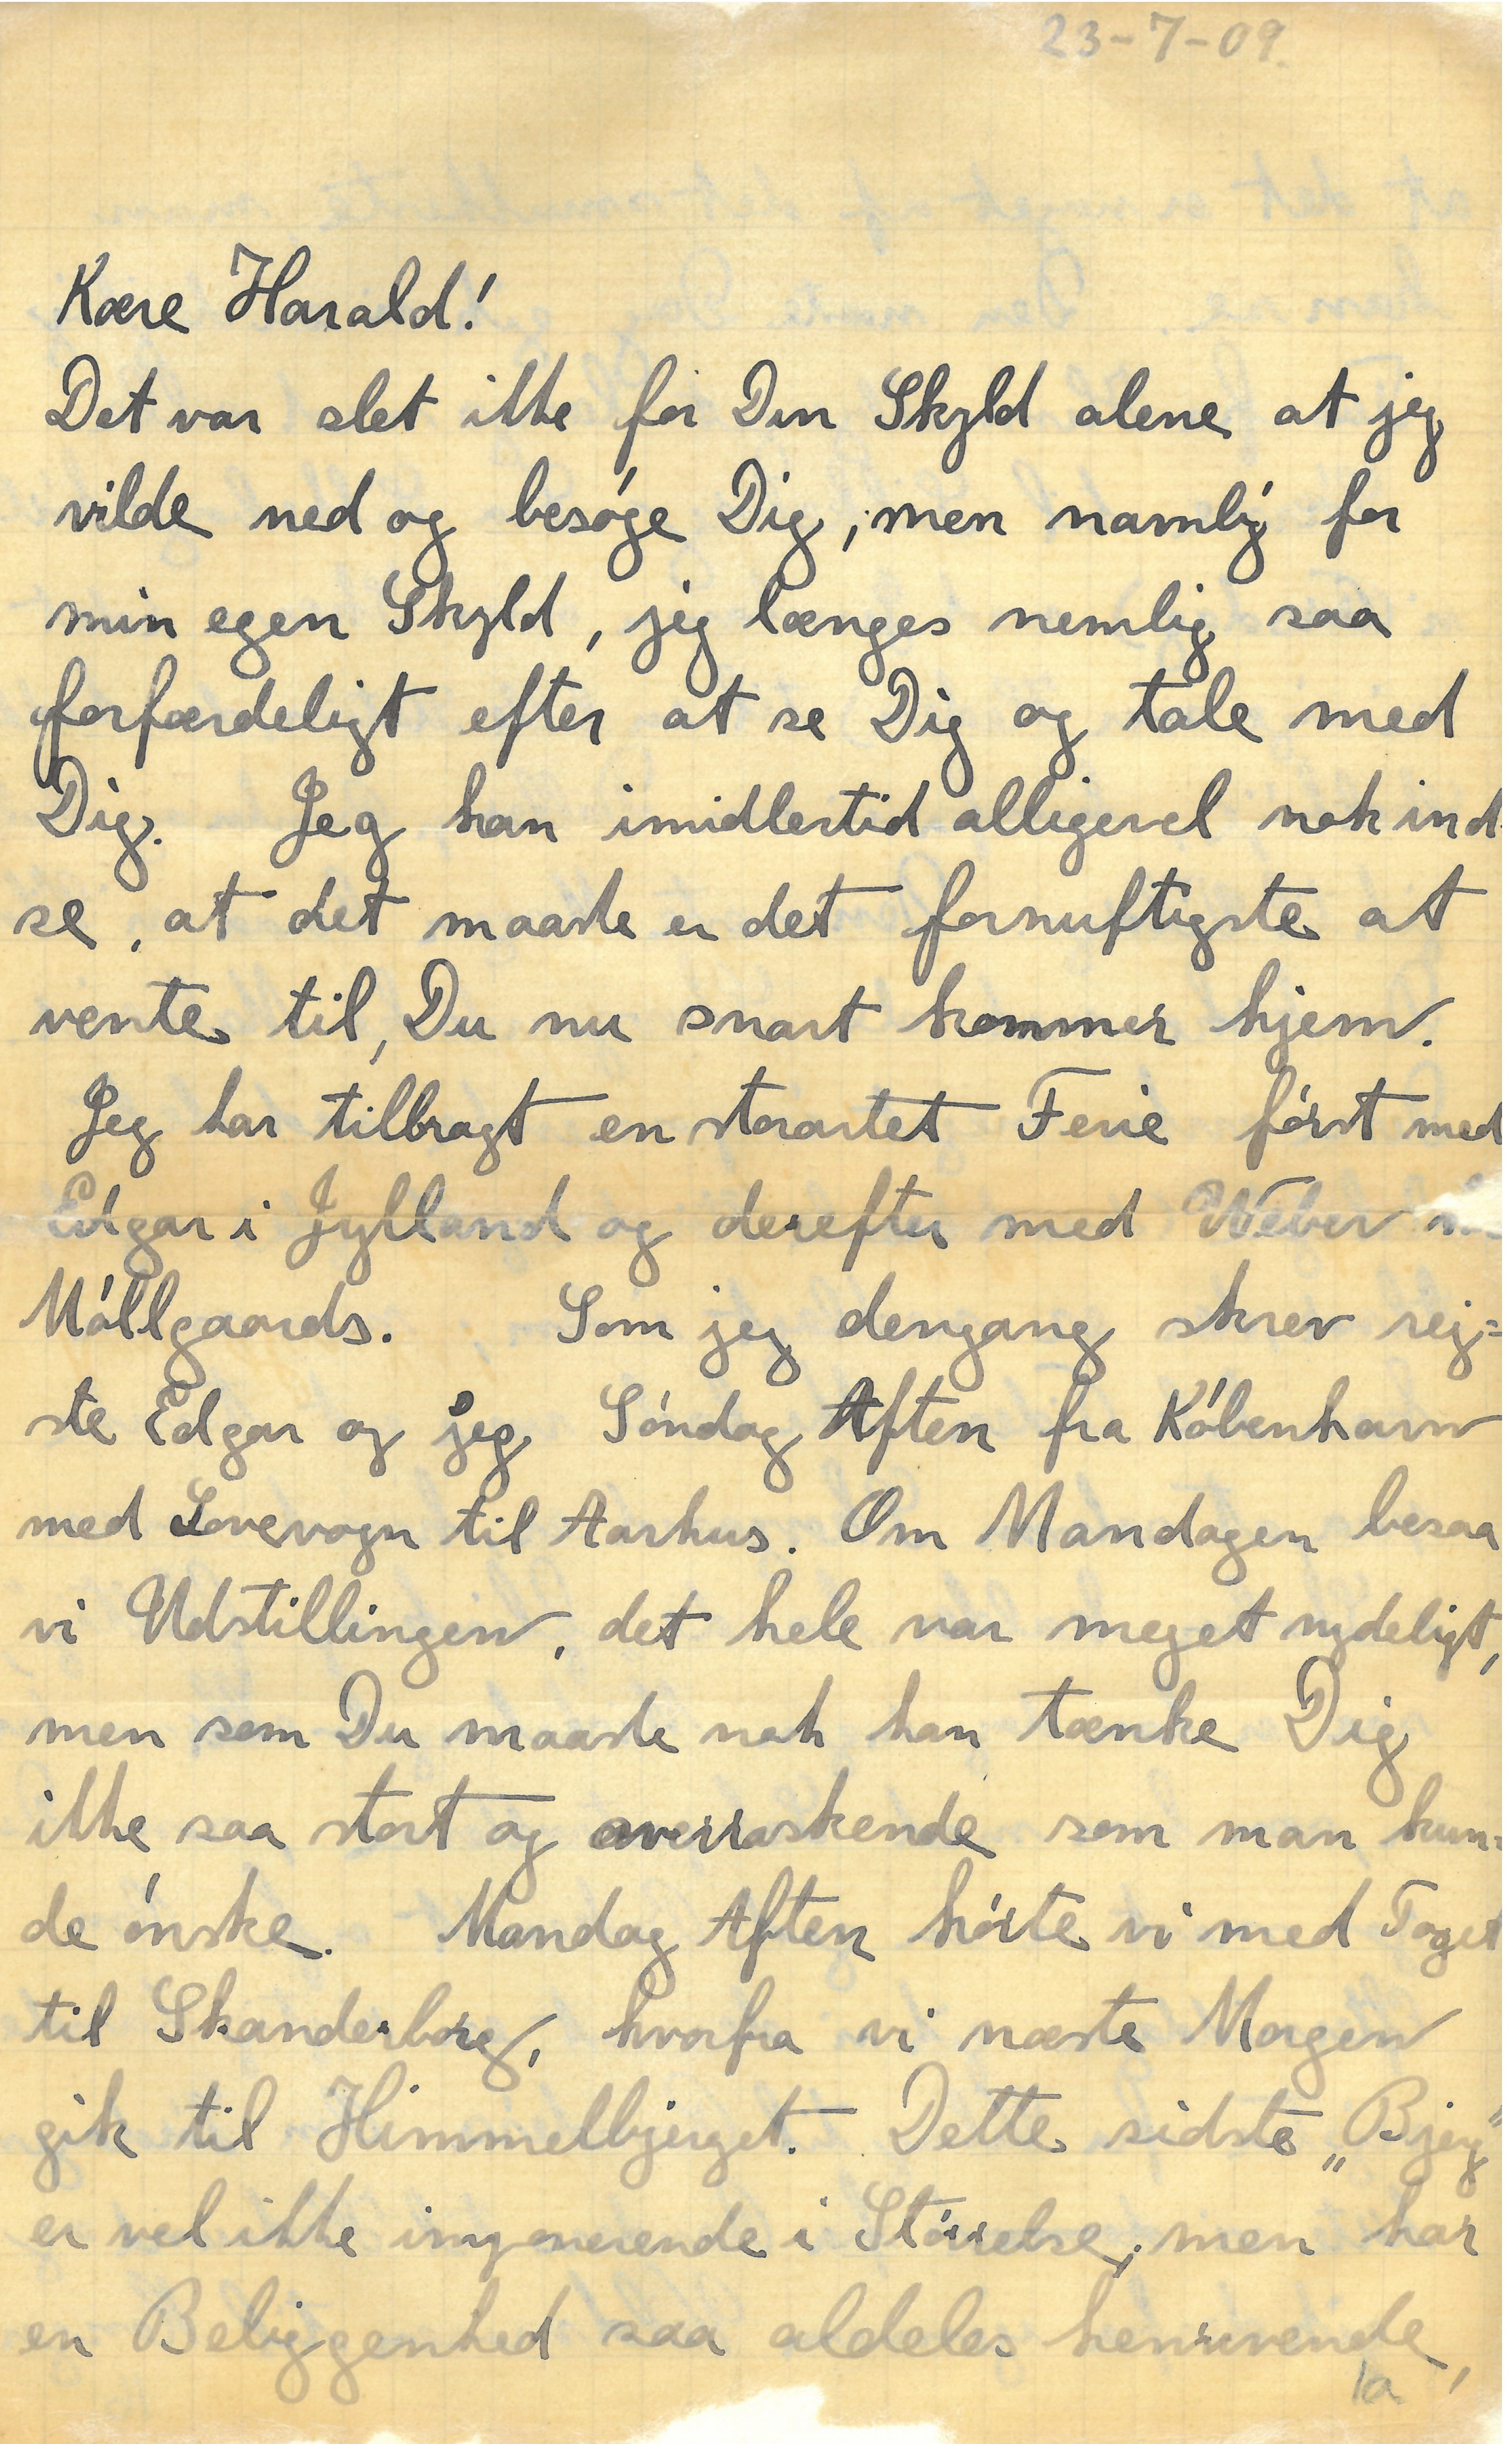 23-7-09.
Kære Harald!
Det var slet ikke for Din Skyld alene at jeg
vilde ned og besøge Dig, men navnlig for
min egen Skyld, jeg længes nemlig saa
forfærdeligt efter at se Dig og tale med
Dig. Jeg kan imidlertid alligevel nok ind-
se, at det maaske er det fornuftigste at
vente til, Du nu snart kommer hjem.
Jeg har tilbragt en storartet Ferie først med
Edgar i Jylland og derefter med Weber
Møllgaards. Som jeg dengang skrev rej=
ste Edgar og jeg Søndag Aften fra København
med Sovevogn til Aarhus. Om Mandagen besaa
vi Udstillingen, det hele var meget nydeligt,
men som Du maaske nok kan tænke Dig
ikke saa stort og overraskende som man kun=
de ønske. Mandag Aften kørte vi med Toget
til Skanderborg, hvorfra vi næste Morgen
gik til Himmelbjerget. Dette sidste „Bjerg"
er vel ikke imponerende i Størrelse, men har
en Beliggenhed saa aldeles henrivende,
1a